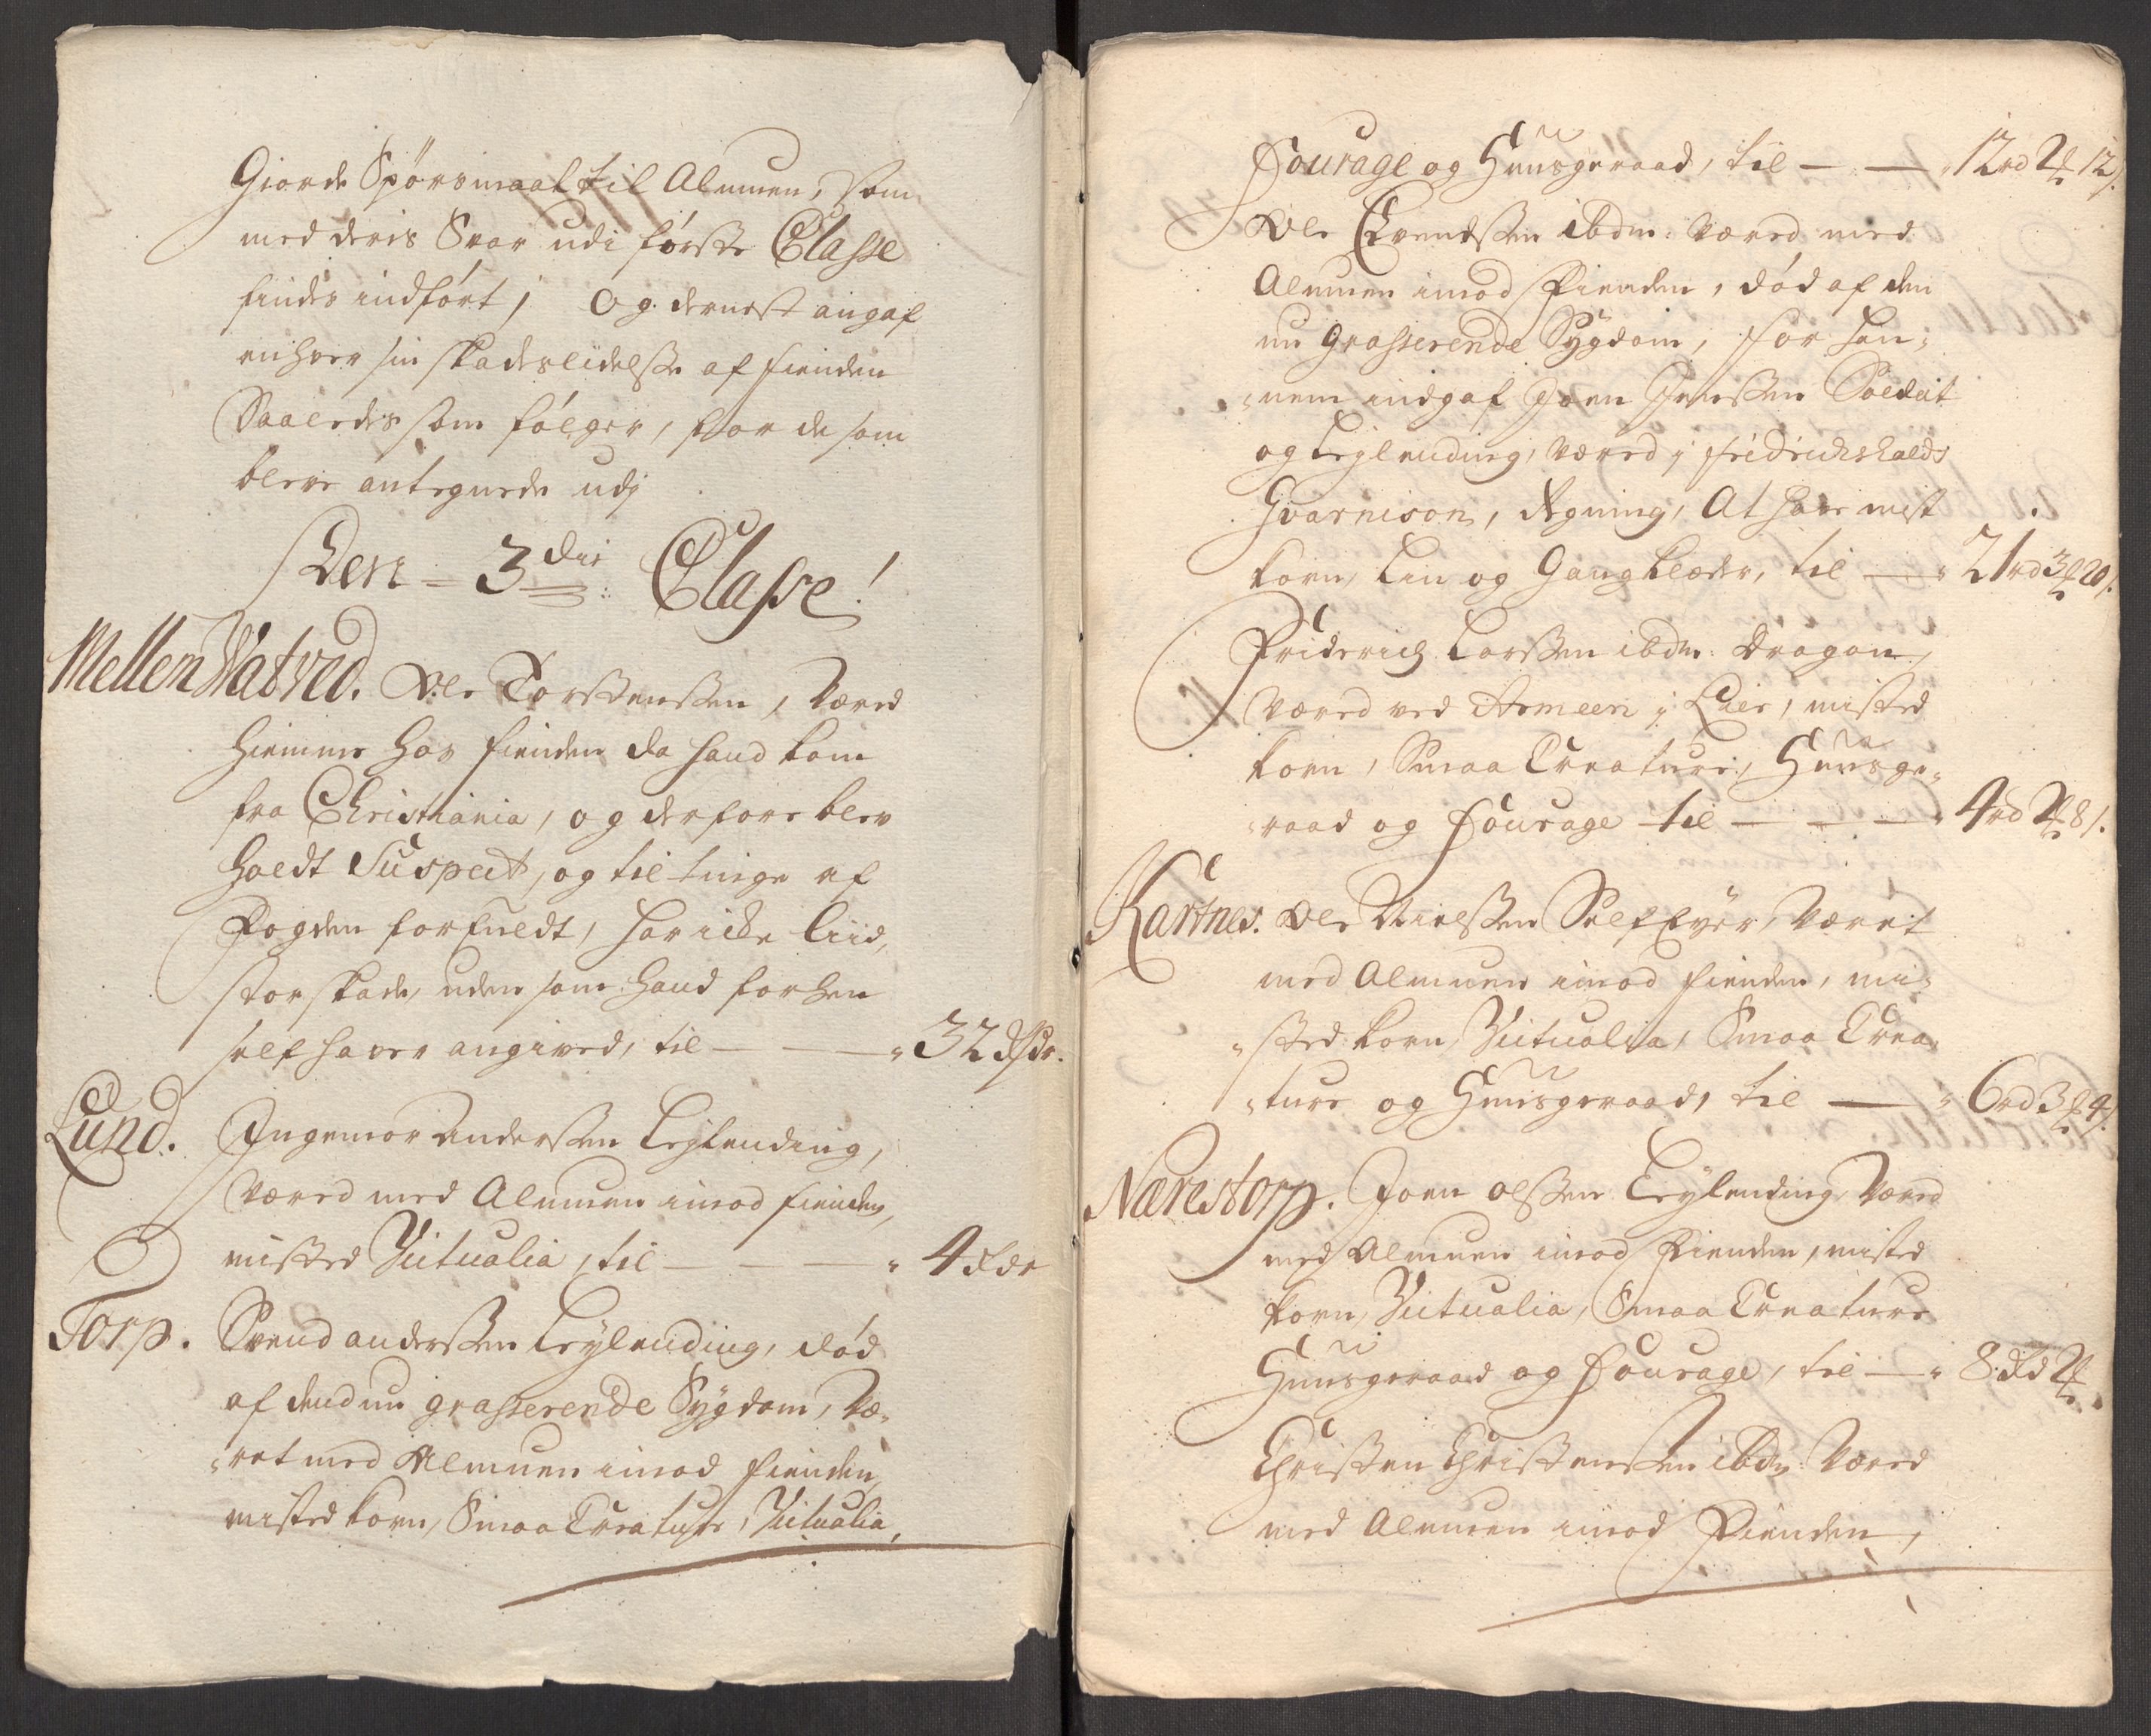 Giorde Spörsmaal til Almuen, som
med deris Svar udi förste Classe
findes indfört; Og dernest angaf
enhver sin skades lidelsse af fienden
Saaledes som fölger, for de som
bleve antegnede udj
Den 3die Classe!
Mellem Watved. Ole Torstenssen, Væred
hiemme hos fienden da hand kom
fra Christiania, og derfore blev
holdt Suspect, og til tinge af
Fogden forfuldt, har icke liid,
stor skade, uden som hand forhen
self haver angived, til — — 32 dlr.
Lund. Ingemor Anderssen Leylending,
Væred med Almuen imod fienden,
misted Victualia, til — — — 4 rdr
Torp. Svend anderssen Leylending, död
af dend nu grasserende Sygdom, Væ-
ret med Almuen imod fienden,
misted korn, Smaa Creature, Victualia,
Fourage og Huusgeraad, til — — 12 rd 2 12 s.
Ole Evendssen ibdm: Væred med
Almuen imod Fienden, död af den
nu Grasserende Sygdom, for han-
nem indgaf Joen Jenssen Soldat
og Leylending, Væred j Fridrichshalds
Gvarnison, Regning, At have mist
korn, Lin og Gangklæder, til — 21 rd 3 20 s.
Friderich Larssen ibdm: Dragon,
Væred ved Armeen i Leir, misted
korn, Smaa Creature, Huusge-
raad og Fourage til — — — 4 rd 2 8 s.
Kartnes. Ole Nielssen Self Eyer, Været
med Almuen imod fienden, mi-
sted korn, Victualia, Smaa Crea-
ture og Huusgeraad, til — 6 rd 3 4 s.
Nærestorp. Joen olssen Leylending Væred
med Almuen imod Fienden, misted
korn, Victualia, Smaa Creature
Huusgeraad og Fourage, til — 8 rd 2
Christen Christenssen ibdm: Væred
med Almuen imod Fienden,